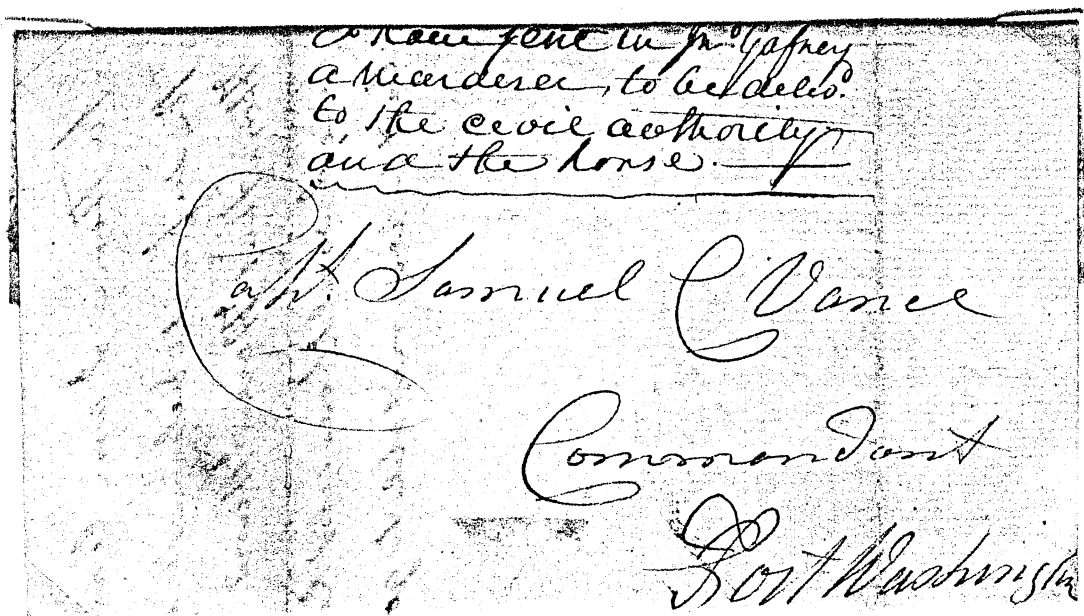 & have sent in Jno. Gafney
a Murderer, to be delivd.
to the civil authority
and the horse.
Capt. Samuel C Vance
Commandant
Fort Washington